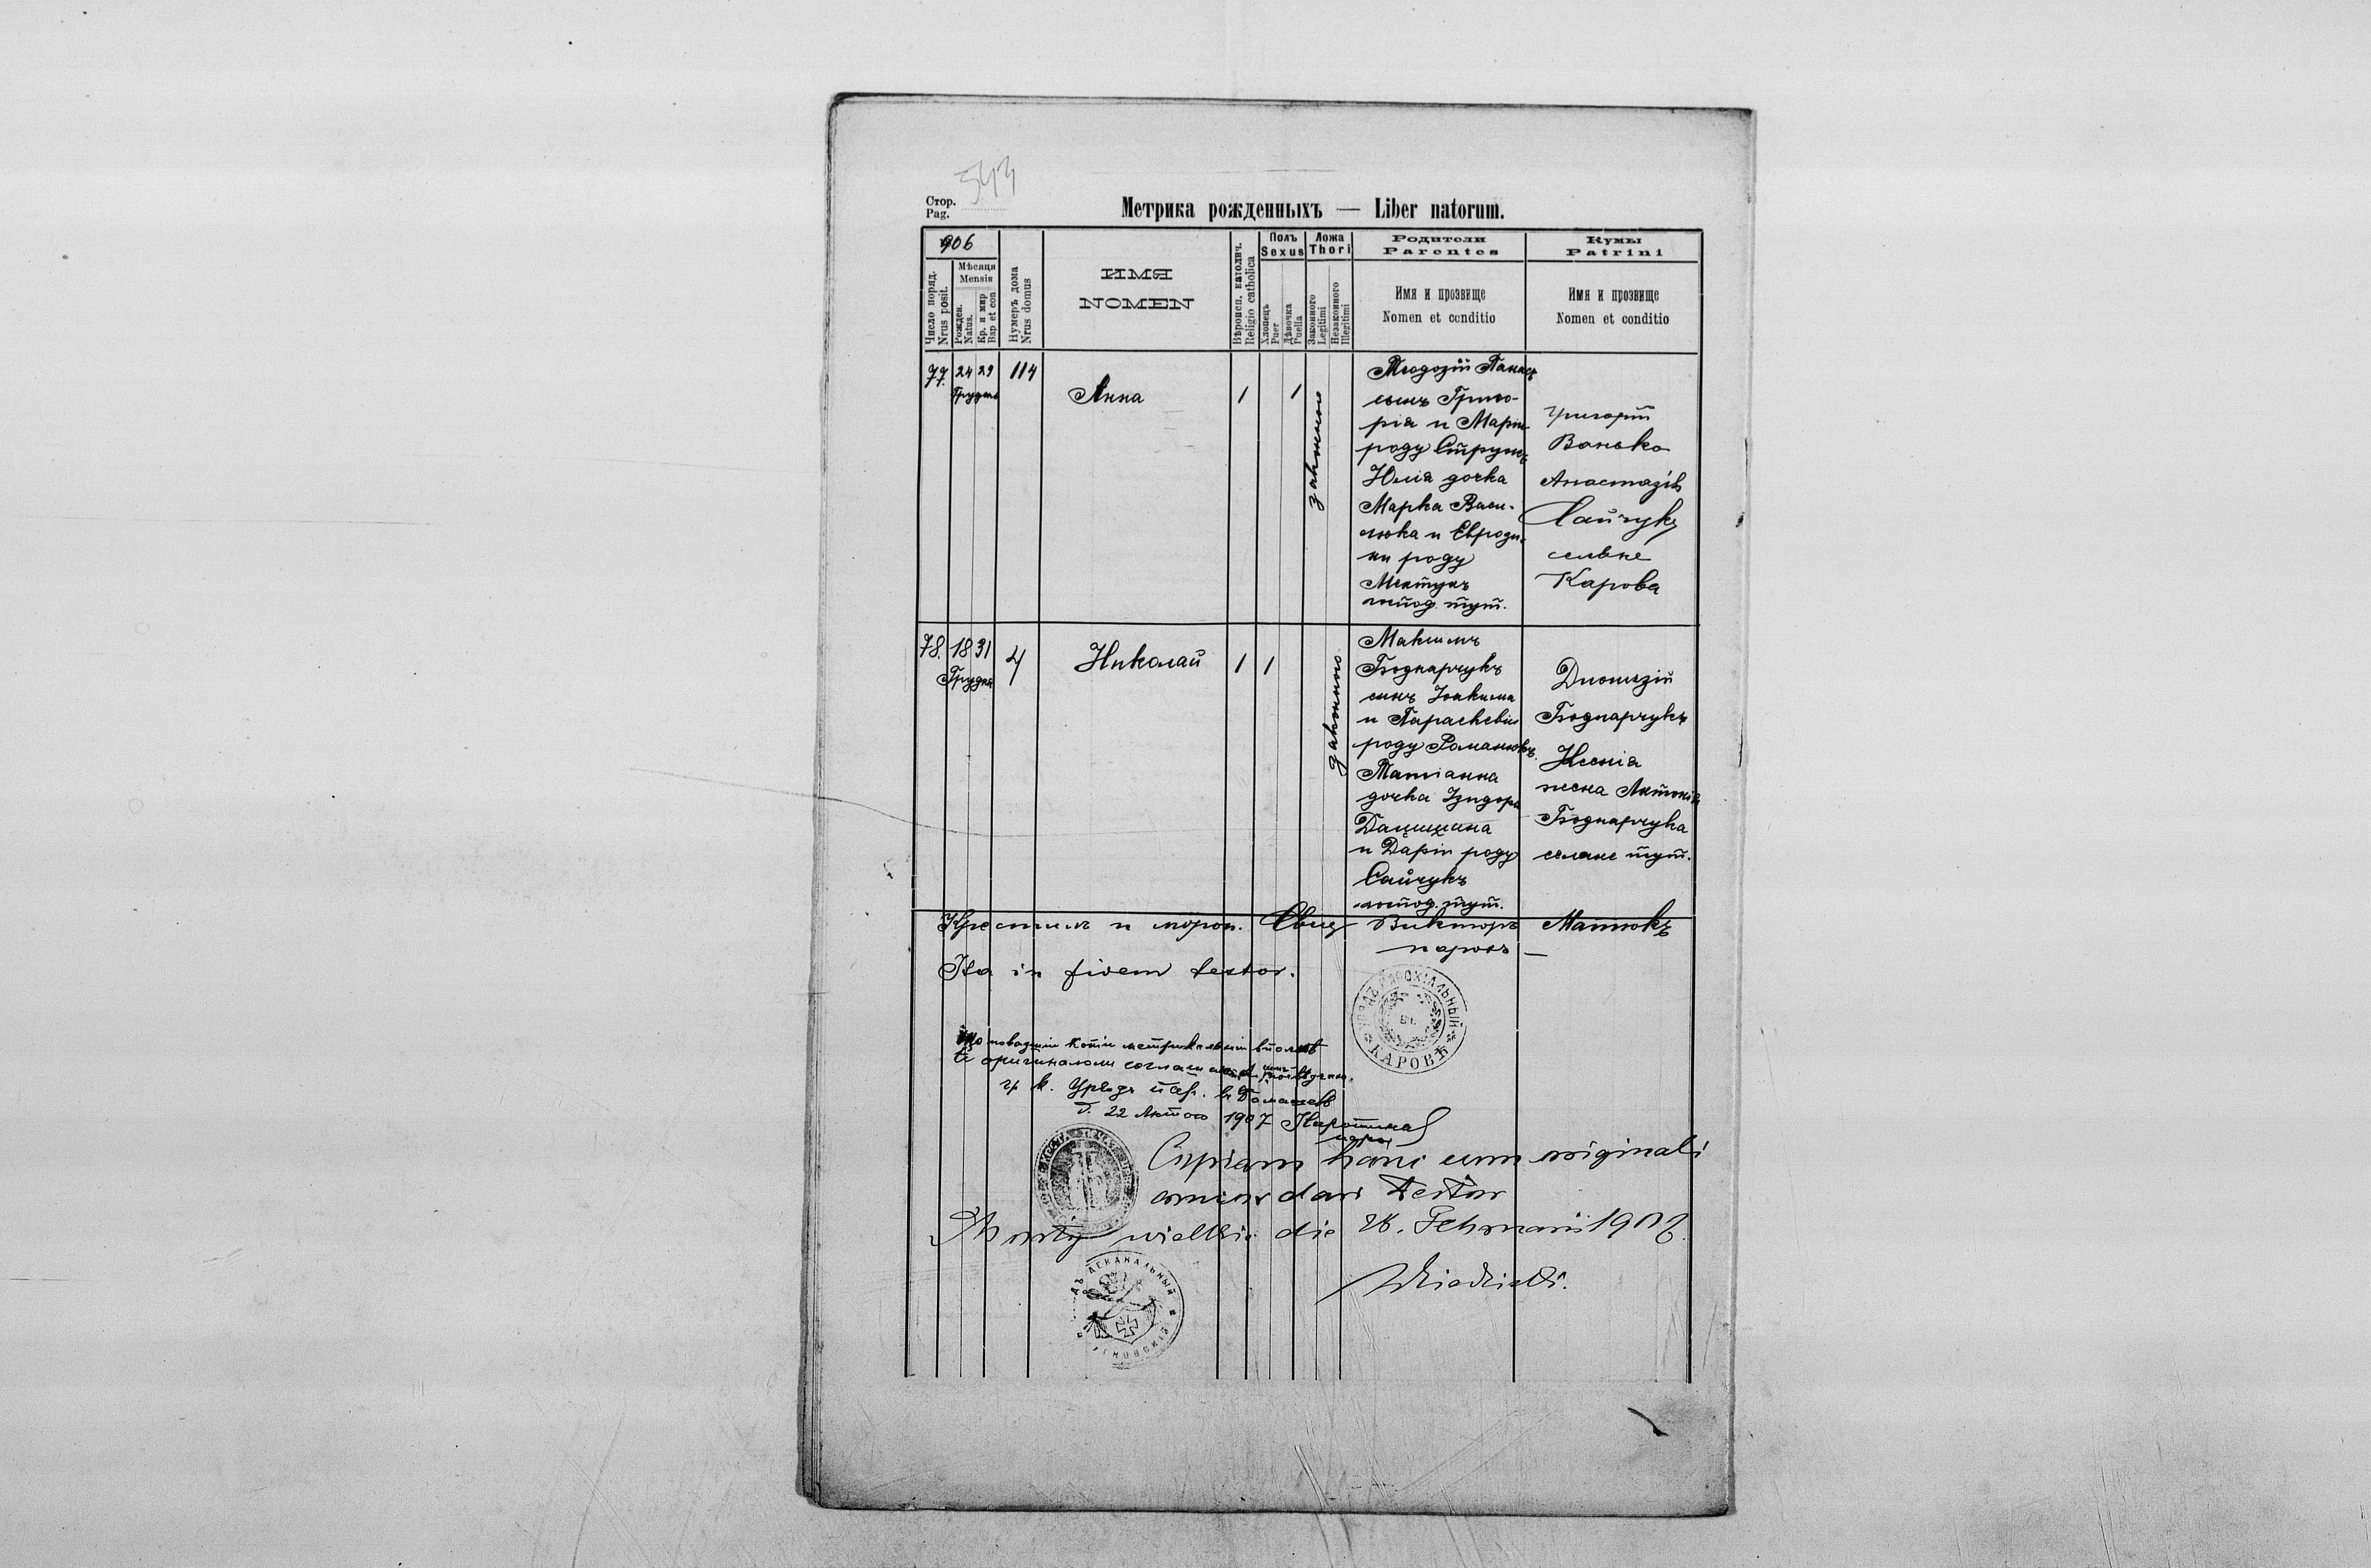 543
Стор.
Pag.
Метрика рожденныхъ — Liber natorum.
906
Число поряд.
Nrus posit.
Мѣсяця
Mensis
Рожден.
Natus.
Кр. и мир
Bap et con
Нумеръ дома
Nrus domus
ИМЯ
NOMEN
Вѣроисп. католич.
Religio catholica
Полъ
Sexus
Хлопецъ
Puer
Дѣвочка
Puella
Ложа
Thori
Законного
Legitimi
Незаконного
Illegitimi
Родители
Parentes
Имя и прозвище
Nomen et conditio
Кумы
Patrini
Имя и прозвище
Nomen et conditio
77. 24 29 114
Грудня
Анна
1 1
законного
Теодозій Панасъ
сынъ Григо-
рія и Маріи
роду Струмъ
Юлія дочка
Марка Васи-
люка и Евроди-
ни роду
господ. тут.
Григорій
Ванько
Анастазія
Сайчукъ
селяне
Карова
78. 18 31 4
Грудня
Николай
1 1
законного
Максимъ
Боднарчукъ
сынъ Іоакима
и Параскевіи
роду Романюкъ.
Татіанна
дочка Ізидора
Дацишина
и Даріи роду
Сайчукъ
господ. тут.
Дионизій
Боднарчукъ
Ксенія
жена Антонія
Боднарчука
селяне тут.
Крестилъ и мѵроп. Свящ Викторъ Матюкъ
парохъ —
Ita in fidem testor.
УРЯДЪ ПАРОХІАЛЬНЫЙ
КАРОВѢ
оригиналомъ
гр. к. Урядъ пар. в Домашевѣ
д. 22 Лютого 1907
парох
Copiam hanc cum originali
concordare testor
wielkie die 28. Februarii 1907.
ДЕКАНАЛЬНЫЙ